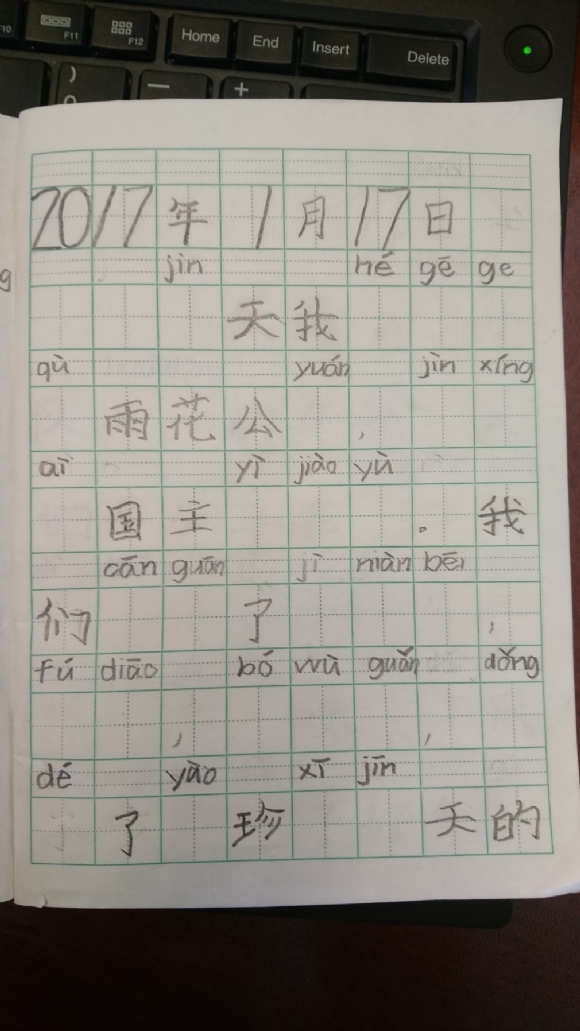 F10 F11 F12 Home End Insert Delete
) — +
g
2017年1月17日
jin hé gē ge
天我
qù yuán jìn xíng
雨花公，
aī yì jiào yù
国主。我
cān guān jì niàn bēi
们了，
fú diāo bó wù guǎn dǒng
，，
dé yào xī jīn
了珍天的